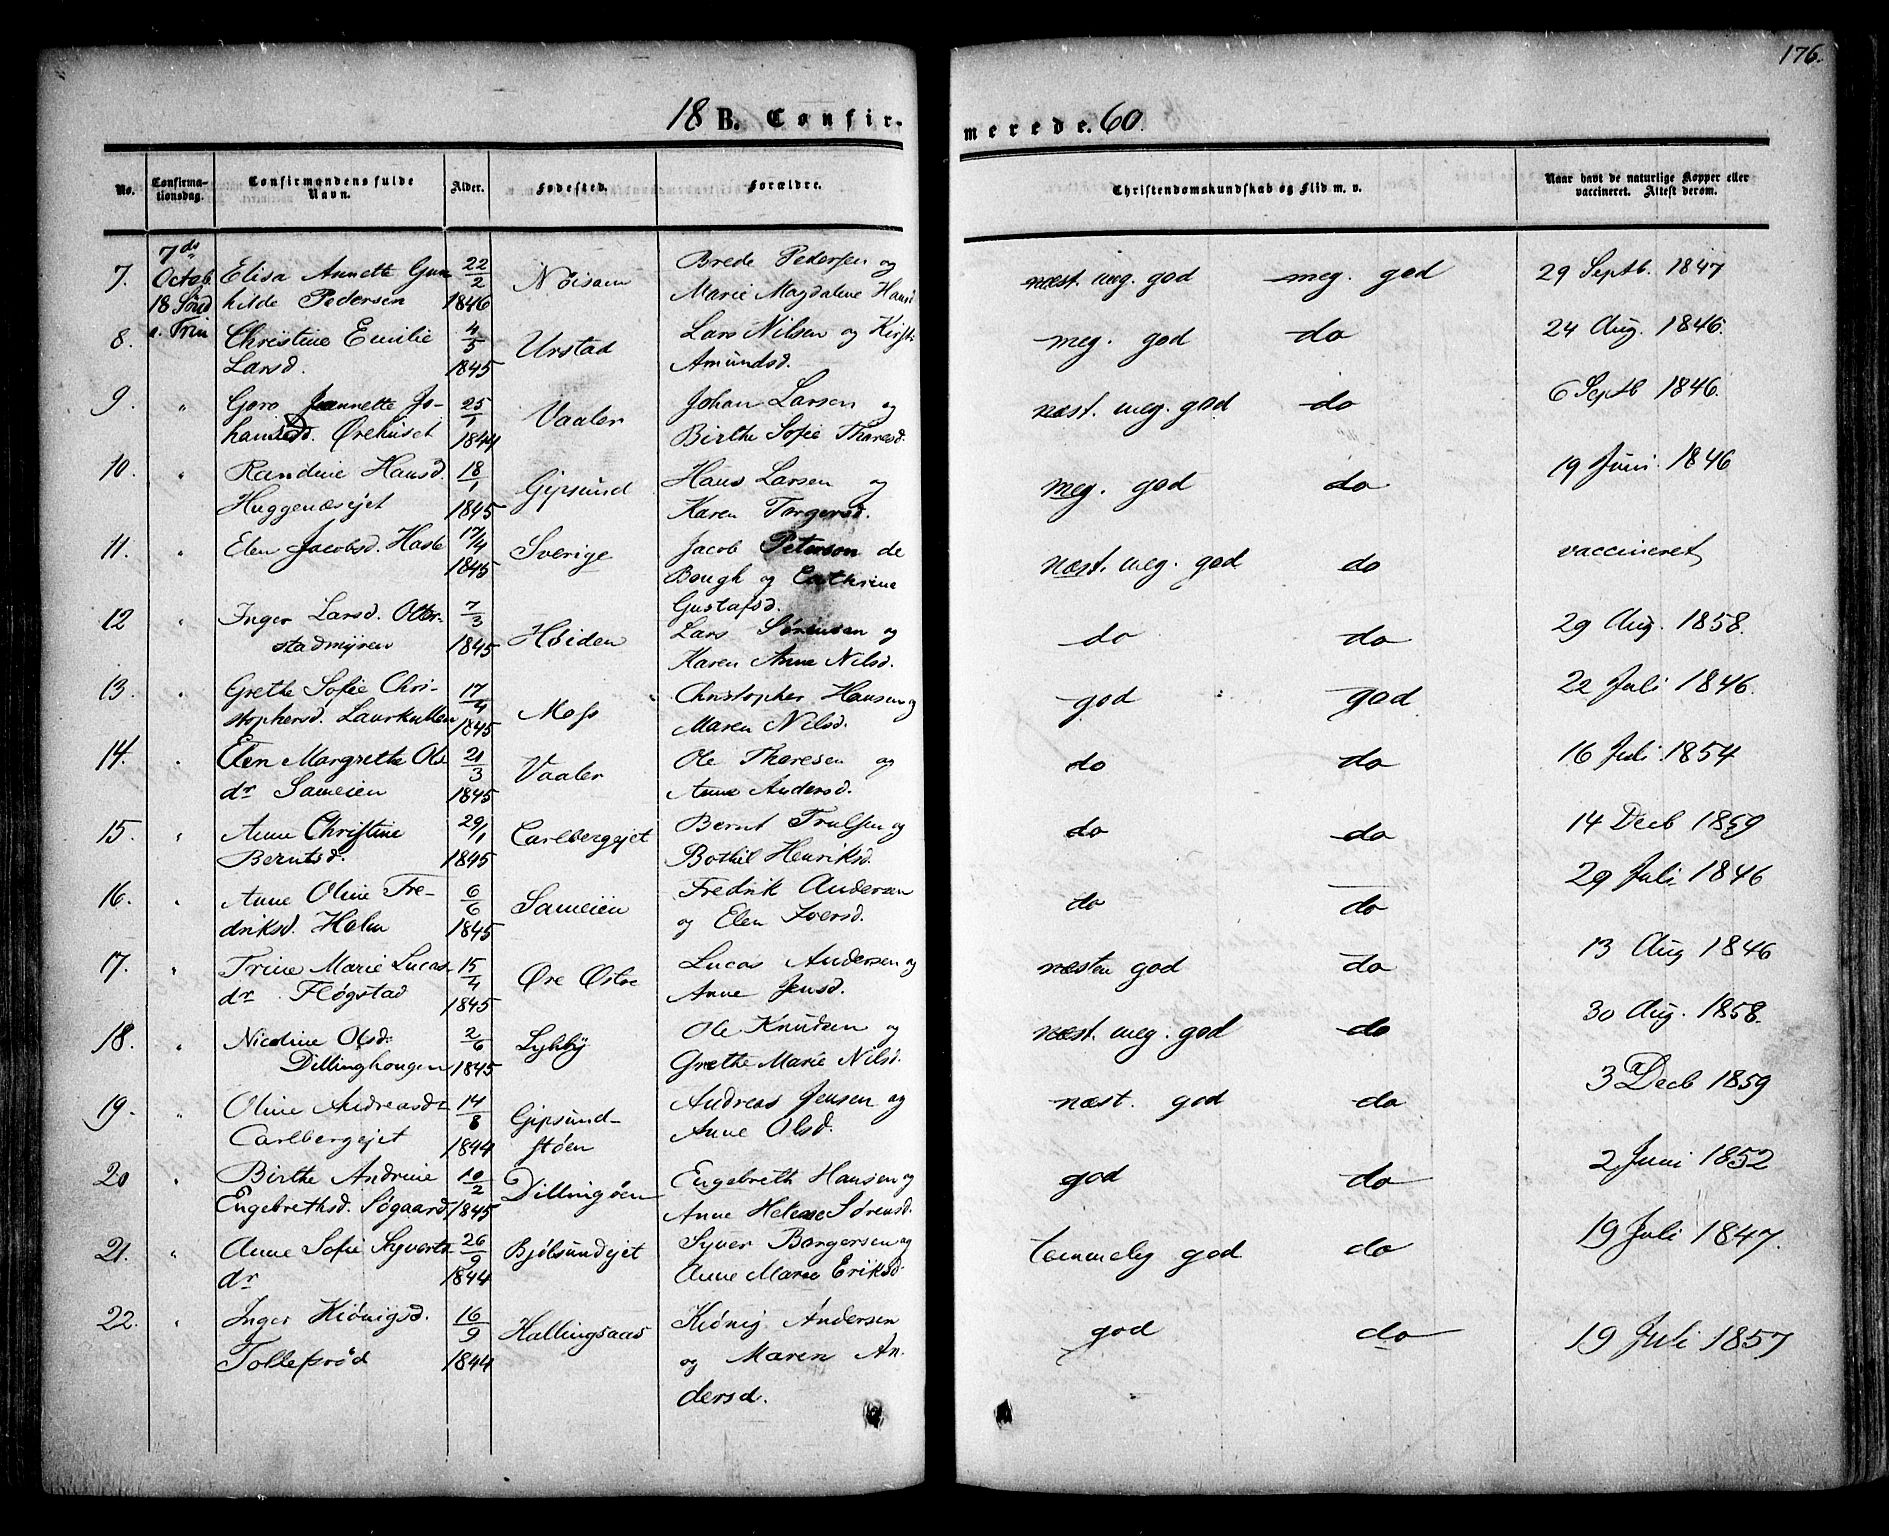 176.
18 B. Confir-
merede. 60.
No. Confirma-tionsdag. Confirmandens fulde Navn. Alder. Fødested. Forældre. Christendomskundskab og Flid m. v. Naar havt de naturlige Kopper eller vaccineret. Attest derom.
7. 7de Octob. 18 Sønd e. Trin Elisa Annette Gun
hilde Pedersen 22/2 1846 Nøisom Brede Pedersen og
Marie Magdalene Hansd næst. meg. god meg. god 29 Septb. 1847
8. Christine Emilie
Larsd. 4/5 1845 Urstad Lars Nilsen og Kirsti
Amundsd. meg. god do 24 Aug. 1846.
9. " Goro Jeannette Jo-
hansd. Ørehuset 25/1 1844 Vaaler Johan Larsen og
Birthe Sofie Thoresd. næst. meg. god do 6 Septb 1846.
10. " Randine Hansd.
Huggenæsejet 18/1 1845 Gipsund Hans Larsen og
Karen Torgersd. meg. god do 19 Juni. 1846
11. " Elen Jacobsd. Hasle 17/4 1845 Sverige Jacob Peterson de
Bough og Cathrine
Gustafsd. næst. meg. god do vaccineret
12 " Inger Larsd. Otter-
stadmyren 7/3 1845 Høiden Lars Sørensen og
Karen Anne Nilsd. do do 29 Aug. 1858.
13. " Grethe Sofie Chri-
stophersd. Laurkullen 17/4 1845 Moss Christopher Hansen og
Maren Nilsd. god god 22 Juli 1846.
14. " Elen Margrethe Ols
dr Sameien 21/3 1845 Vaaler Ole Thoresen og
Anne Andersd. do do 16 Juli 1854
15. " Anne Christine
Berntsd. 29/1 1845 Carlbergejet Bernt Trulsen og
Bothil Henriksd. do do 14 Decb 1859
16. " Anne Oline Fre-
driksd. Holm 6/6 1845 Sameien Fredrik Andersen
og Elen Iversd. do do 29 Juli 1846
17. " Trine Marie Lucas
dr Fløgstad 15/4 1845 Øre Østre Lucas Andersen og
Anne Jensd. næsten god do 13 Aug 1846
18. " Nicoline Olsd.
Dillinghougen 2/6 1845 Lykby Ole Knudsen og
Grethe Marie Nilsd. næst. meg. god do 30 Aug. 1858.
19. " Oline Andreasdr
Carlbergejet 14/8 1844 Gipsund-
støen Andreas Jensen og
Anne Olsd. næst. god do 3 Decb 1859
20 " Birthe Andrine
Engebrethsd. Søgaard 10/2 1845 Dillingøen Engebreth Hansen og
Anne Helene Sørensd. god do 2 Juni 1852
21. " Anne Sofie Syverts
dr 26/9 1844 Bjølsundejet Syver Borgersen og
Anne Marie Eriksd. temmelig god do 19 Juli 1847.
22. " Inger Kiønigsd.
Tollefsrød 16/9 1844 Hallingsaas Kiønig Andersen
og Maren An-
dersd. god do 19 Juli 1857